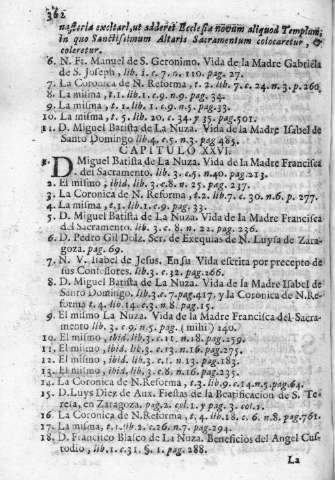 362
nasteria excitari, ut adderet Ecclesia novum aliquod Templum,
in quo Sanctissimum Altaris Sacramentum colocaretur, &
coleretur.
6. N. Fr. Manuel de S. Geronimo. Vida de la Madre Gabriela
de S. Joseph, lib. 1. c. 7. n. 110. pag. 27.
7. La Coronica de N. Reforma, t. 2. lib. 7. c. 24. n. 3. p. 260.
8. La misma, t. 1. lib. 1. c. 9. n. 9. pag. 34.
9. La misma, t. 1. lib. 1. c. 9. n. 5. pag. 33.
10. La misma, t. 5. lib. 20. c. 34. §. 35. pag. 501.
11. D. Miguel Batista de La Nuza. Vida de la Madre Isabel de
Santo Domingo lib. 4. c. 5. n. 3. pag 485.
CAPITULO XXVII.
1. D. Miguel Batista de La Nuza. Vida de la Madre Francisca
del Sacramento. lib. 3. c. 5. n. 40. pag. 213.
2. El mismo, ibid. lib. 3. c. 8. n. 25. pag. 237.
3. La Coronica de N. Reforma, t. 2. lib. 7. c. 30. n. 6. p. 277.
4. La misma, t. 1. lib. 1. c. 9. pag. 33.
5. D. Miguel Batista de La Nuza. Vida de la Madre Francisca
del Sacramento. lib. 3. c. 8. n. 21. pag. 236.
6. D. Pedro Gil Dolz. Ser. de Exequias de N. Luysa de Zara-
goza. pag. 69.
7. N. V. Isabel de Jesus. En su Vida escrita por precepto de
sus Confessores. lib. 3. c. 32. pag. 266.
8. D. Miguel Batista de La Nuza. Vida de la Madre Isabel de
Santo Domingo. lib. 3. c. 7. pag. 417. y la Coronica de N. Re-
forma t. 4. lib. 14. c. 3. n. 8. pag. 15.
9. El mismo La Nuza. Vida de la Madre Francisca del Sacra-
mento lib. 3. c. 9. n. 5. pag. (mihi) 240.
10. El mismo, ibid. lib. 3. c. 11. n. 18. pag. 259.
11. El mismo, ibid. lib. 3. c. 13. n. 16. pag. 275.
12. El mismo, ibid. lib. 3. c. 1. n. 13. pag. 183.
13. El mismo, ibid. lib. 3. c. 8. n. 16. pag. 235.
14. La Coronica de N. Reforma, t. 3. lib. 9. c. 14. n. 5. pag. 64.
15. D. Luys Diez de Aux. Fiestas de la Beatificacion de S. Te-
resa, en Zaragoza. pag. 2. col. 1. y pag. 3. col. 1.
16. La Coronica de N. Reforma, t. 4. lib. 18. c. 6. n. 8. pag. 761.
17. La misma, t. 1. lib. 2. c. 26. n. 7. pag. 294.
18. D. Francisco Blasco de La Nuza. Beneficios del Angel Cus-
todio, lib. 1. c. 31. §. 1. pag. 288.
La